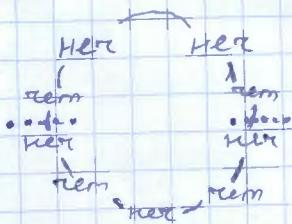 неч неч
чет чет
неч неч
чет чет
неч